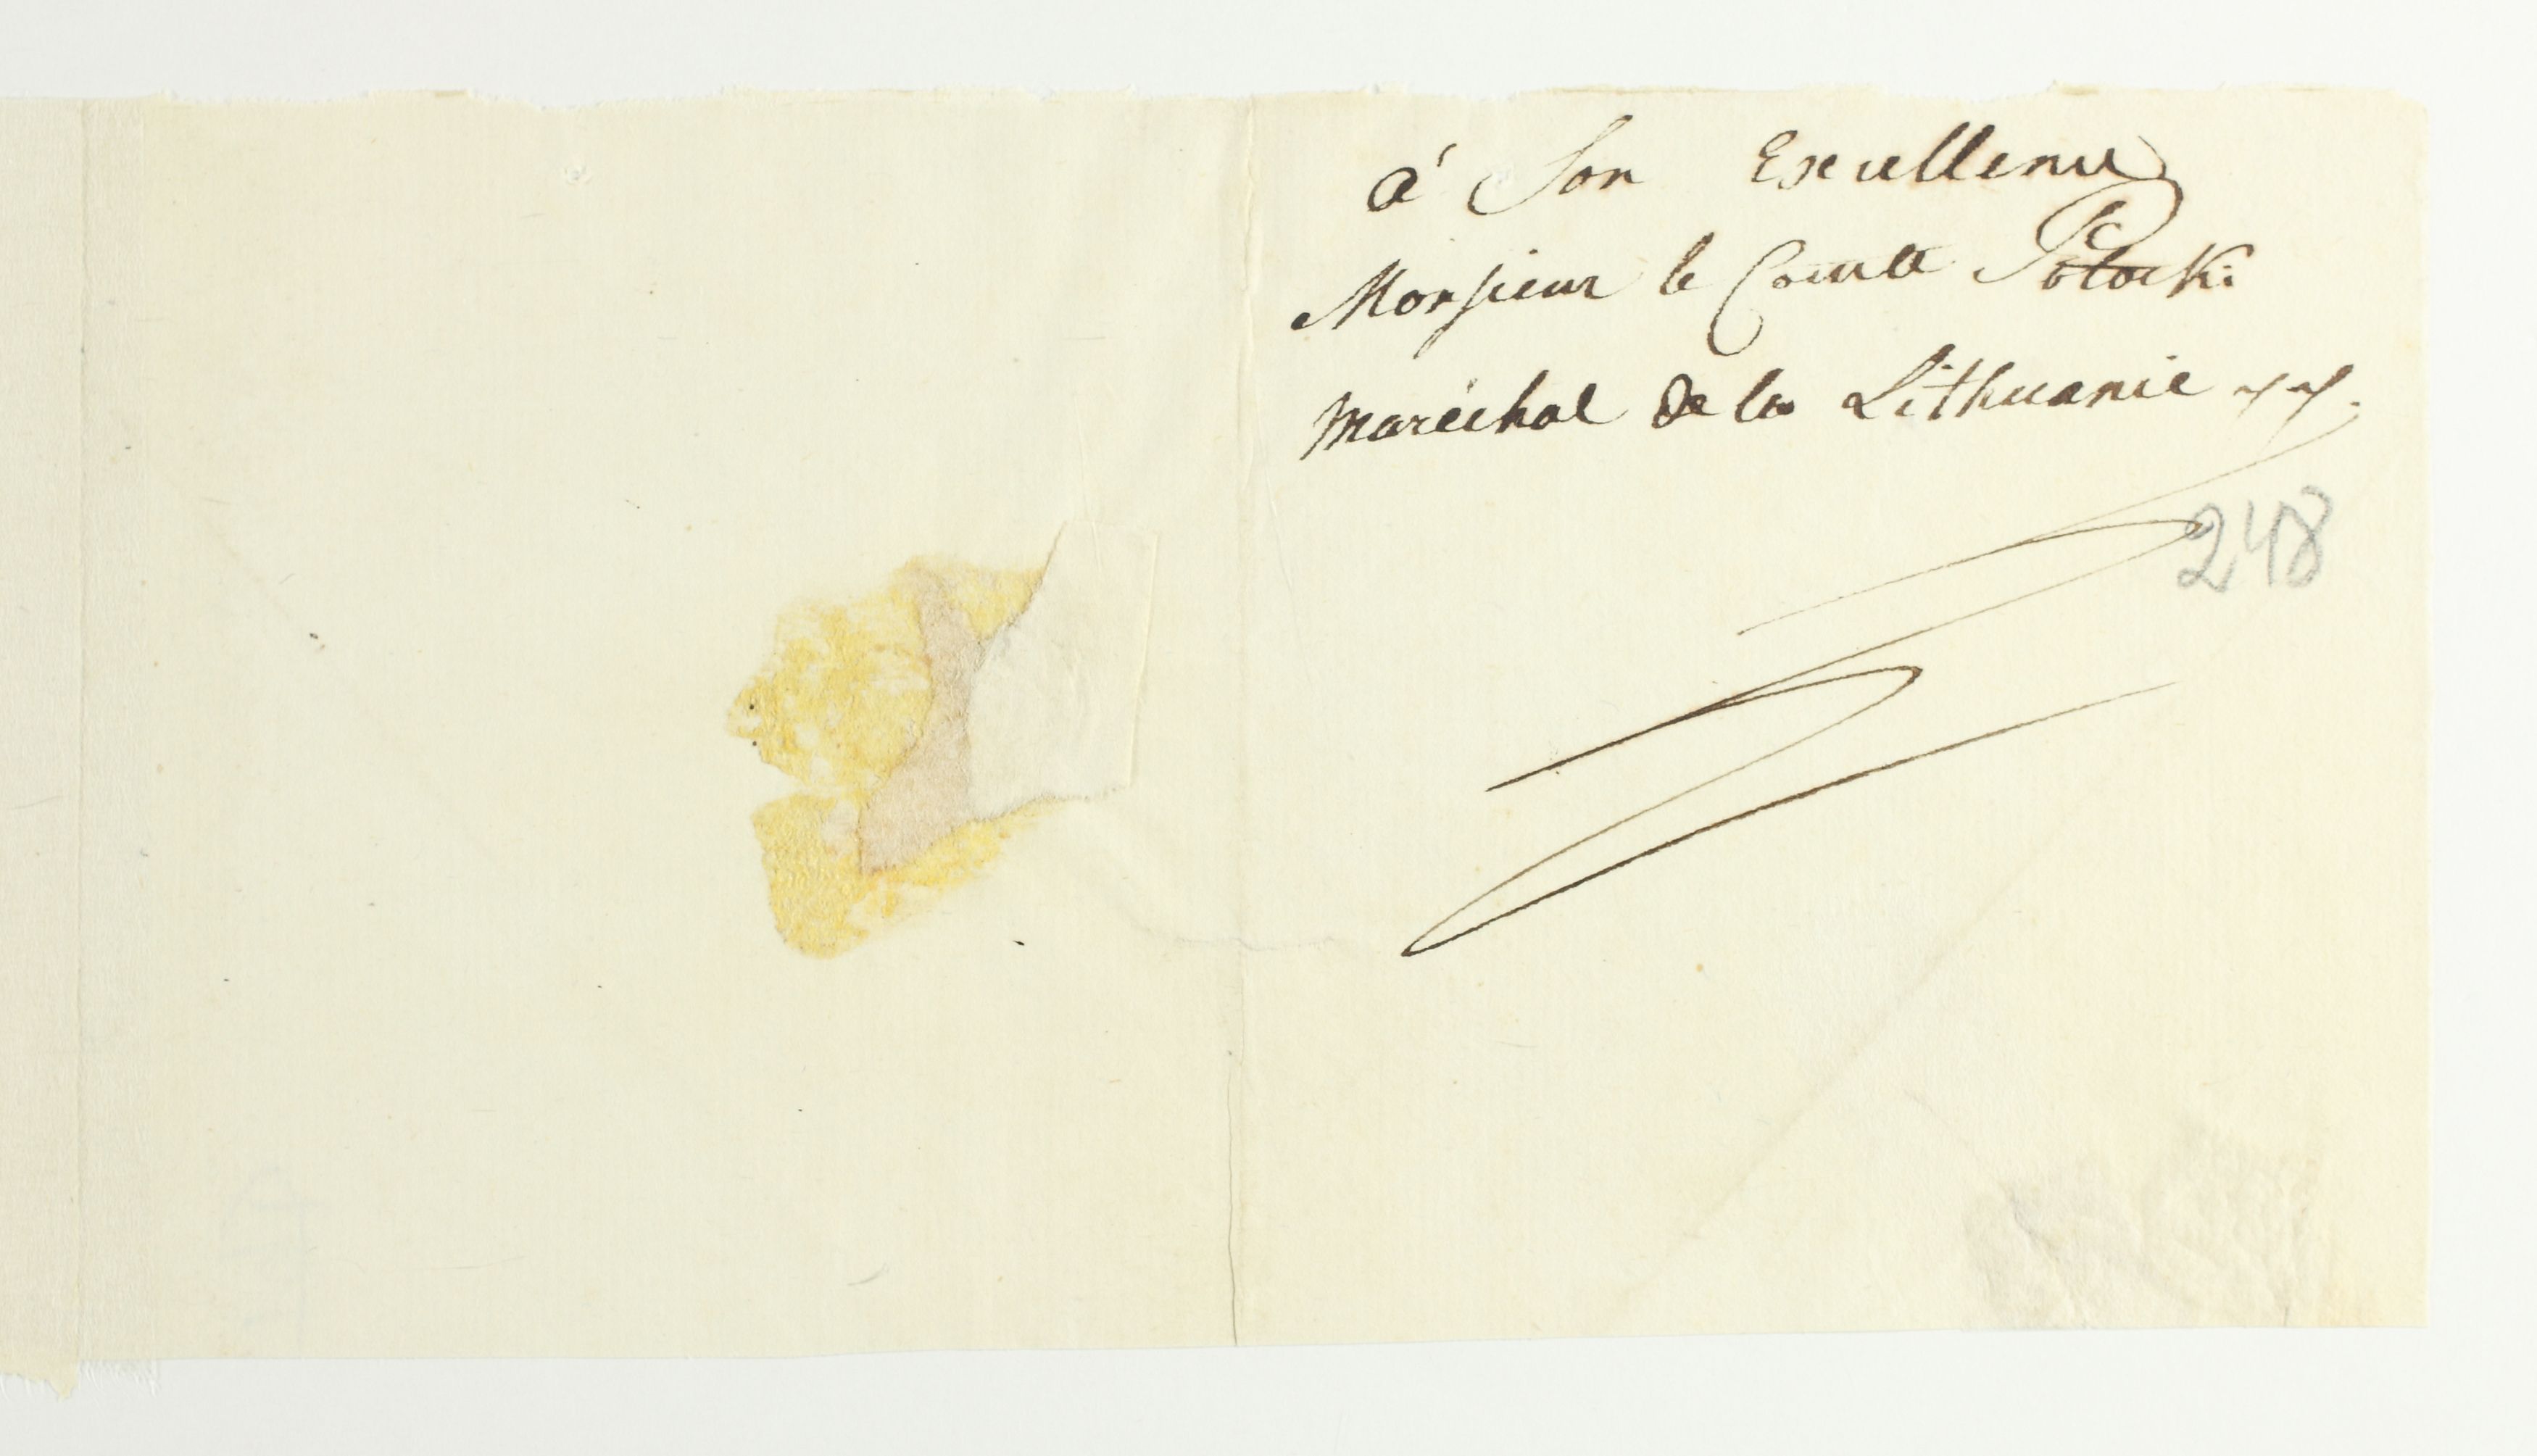 à Son Excellence
Monsieur le Comte Potocki
Maréchal de la Lithuanie
248